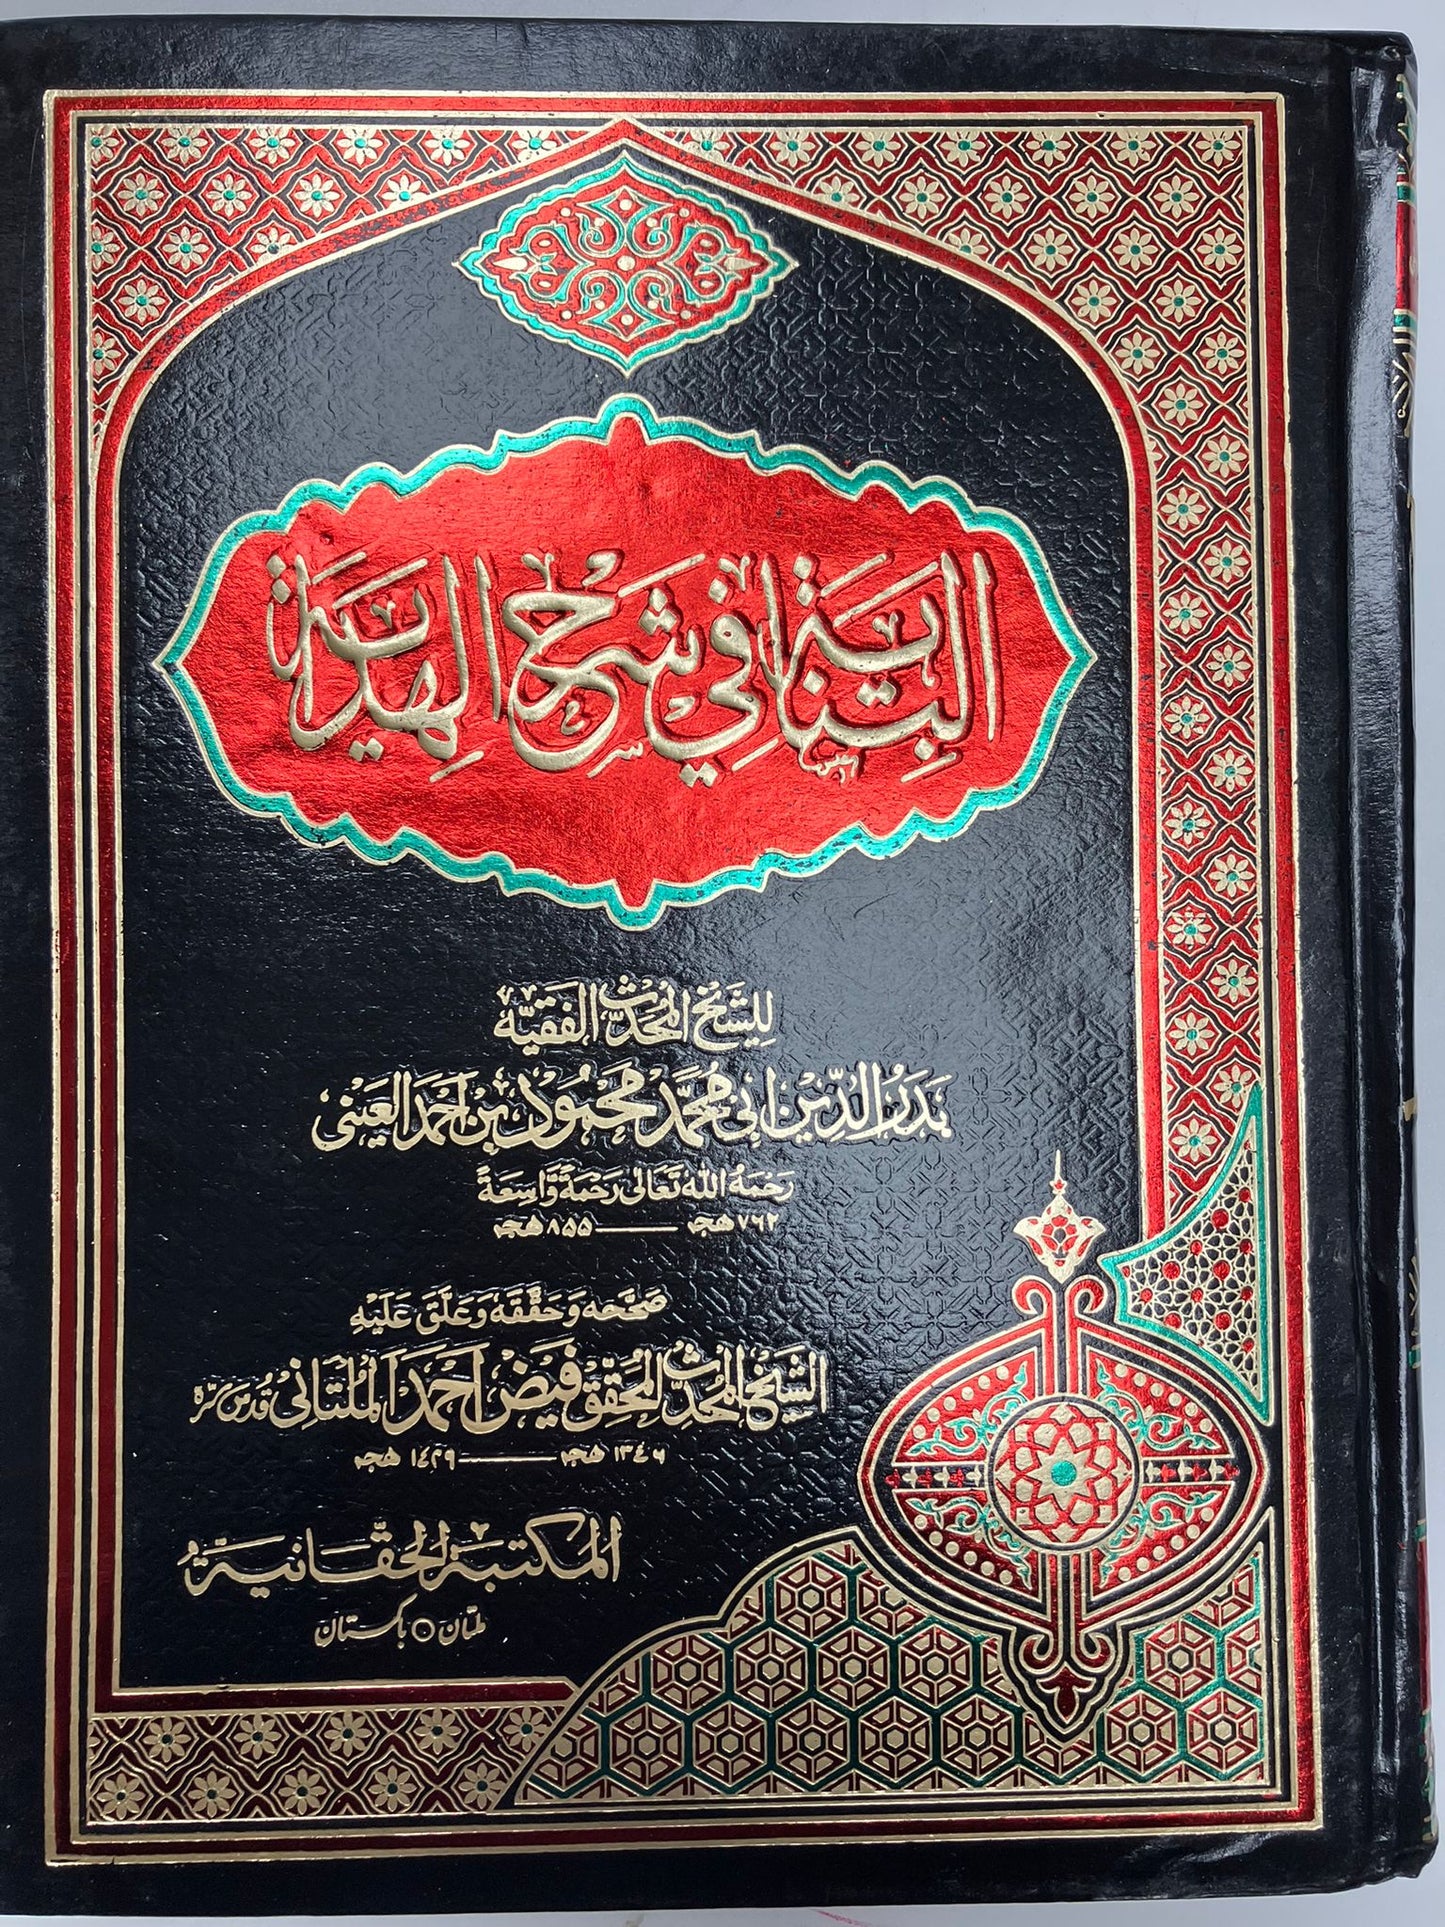 البناية في شرح الهداية
للشيخ المحدث الفقيه
بدر الدين ابي محمد محمود بن احمد العيني
رَحمَهُ اللهُ تَعَالٰى رَحْمَةً وَّاسِعَةً
۷۶۲ هجـ ــــــ ۸۵۵ هجـ
صَحَّحه وَحَقَّقَهُ وَعَلَّقَ عَلَيْهِ
الشيخ المحدث المحقق فيض احمد الملتاني قدس سره
۱۳۴۶ هجـ ــــــ ۱۴۲۹ هجـ
المكتبة الحقانية
ملتان ○ پاکستان